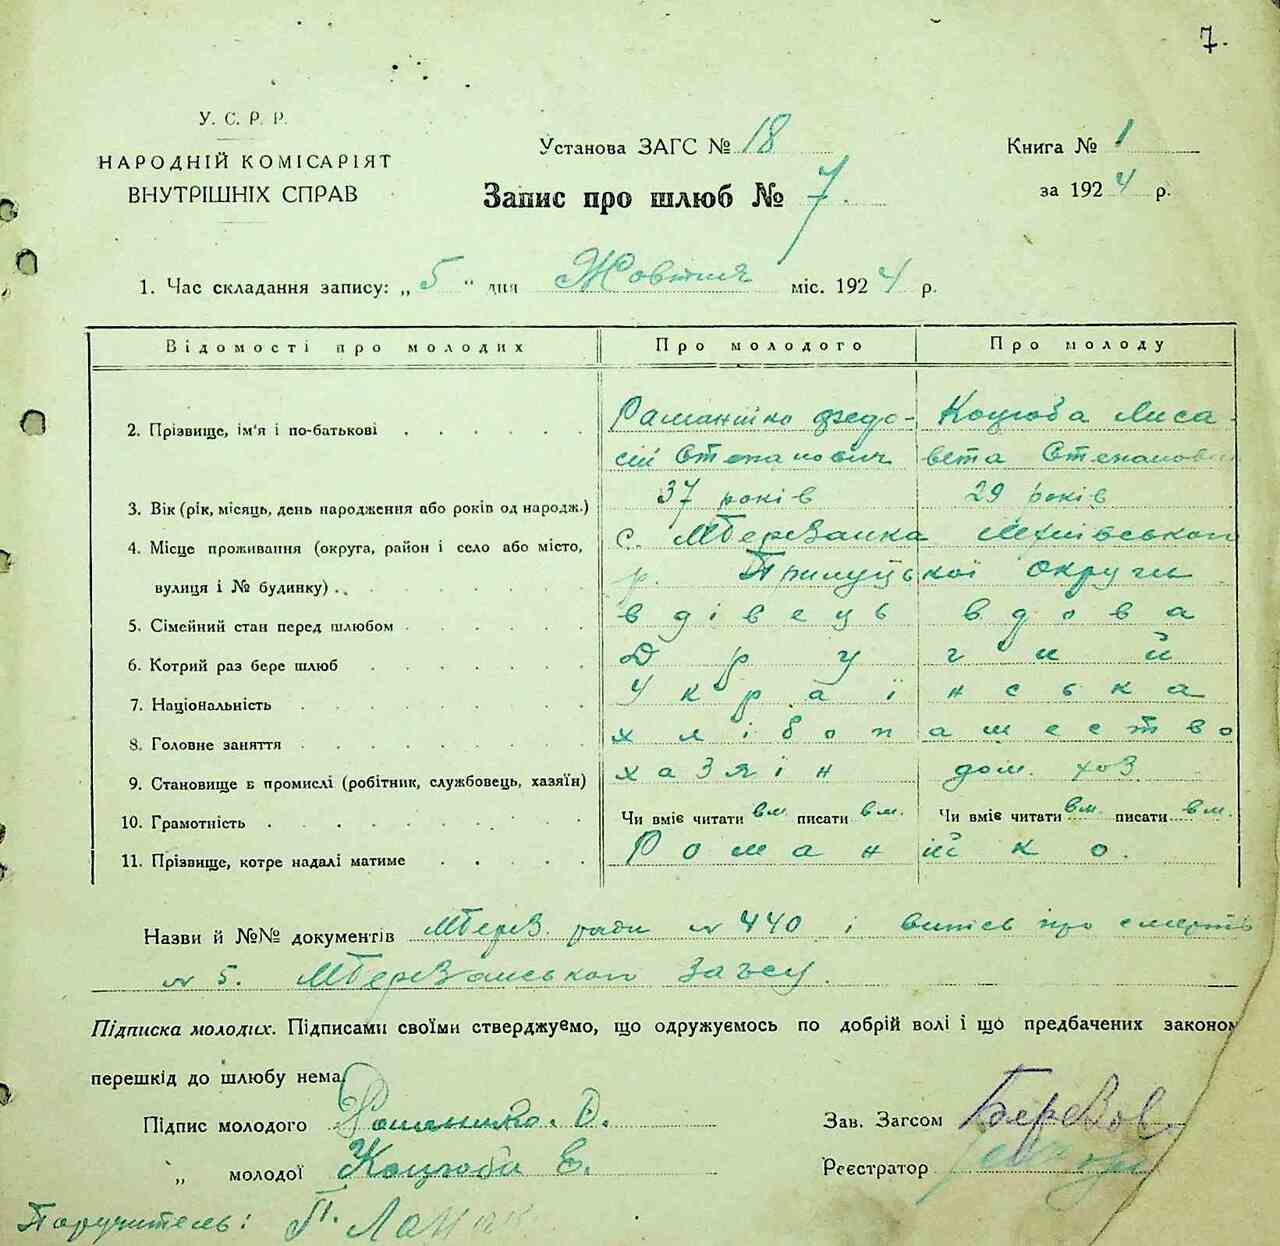 7.
У. С. Р. Р.
НАРОДНІЙ КОМІСАРІЯТ
ВНУТРІШНІХ СПРАВ
Установа ЗАГС № 18
Запис про шлюб № 7.
Книга № 1
за 1924 р.
1. Час складання запису: „ 5 “ дня Жовтня міс. 1924 р.
Відомості про молодих Про молодого Про молоду
2. Прізвище, ім'я і по-батькові Раманійко Федо- Коцюба Лиса-
сій Степанович вета Степановн
3. Вік (рік, місяць, день народження або років од народж.) 37 років 29 років
4. Місце проживання (округа, район і село або місто, с. МБерезанка
вулиця і № будинку) р. Прилуцької округи
5. Сімейний стан перед шлюбом вдівець вдова
6. Котрий раз бере шлюб Другий
7. Національність Українська
8. Головне заняття хлібопашество
9. Становище в промислі (робітник, службовець, хазяїн) хазяін дом. хоз
10. Грамотність Чи вміє читати вм. писати вм. Чи вміє читати вм. писати вм.
11. Прізвище, котре надалі матиме Романійко.
Назви й №№ документів МБерез. ради № 440 і витісь про смерть
№ 5. МБерезанського Загсу
Підписка молодих. Підписами своїми стверджуємо, що одружуємось по добрій волі і що предбачених законом
перешкід до шлюбу нема.
Підпис молодого Романийко. Ф.
„ молодої Коцюба Е.
Зав. Загсом
Реєстратор
Поручитель: П.